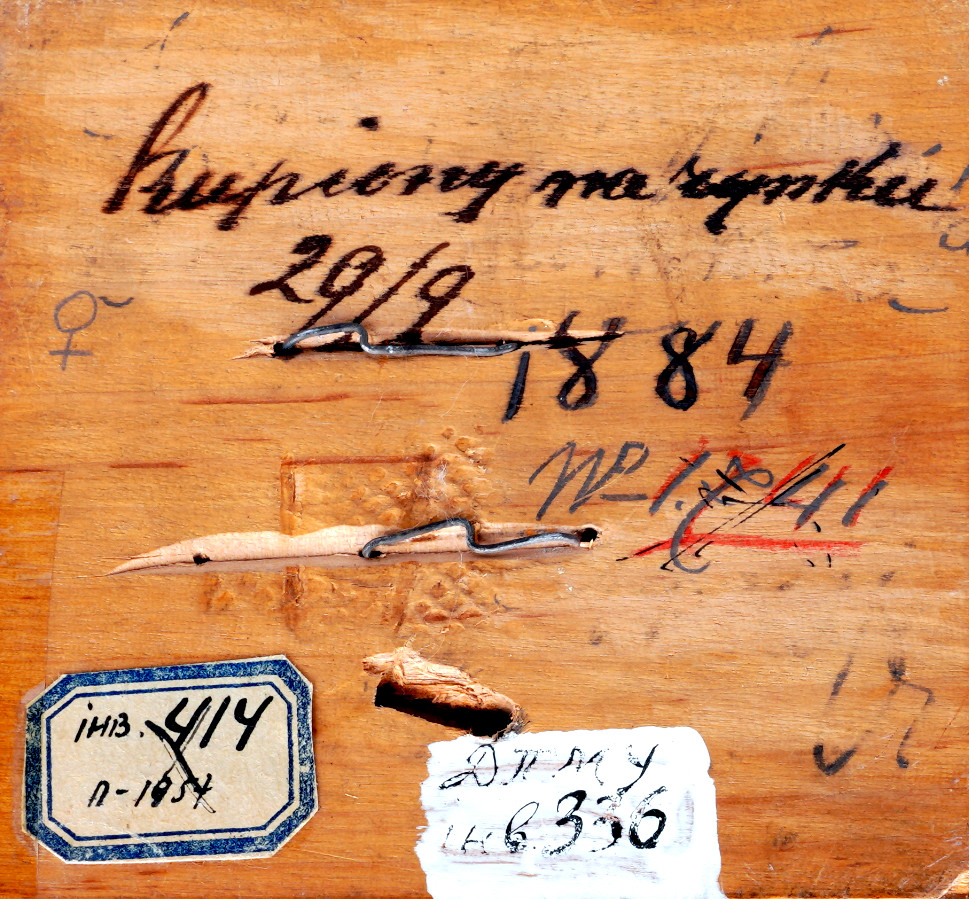 kupiony na rynku
29/9
1884
№
інв. 414
п-1954
ДПМУ
інв 336